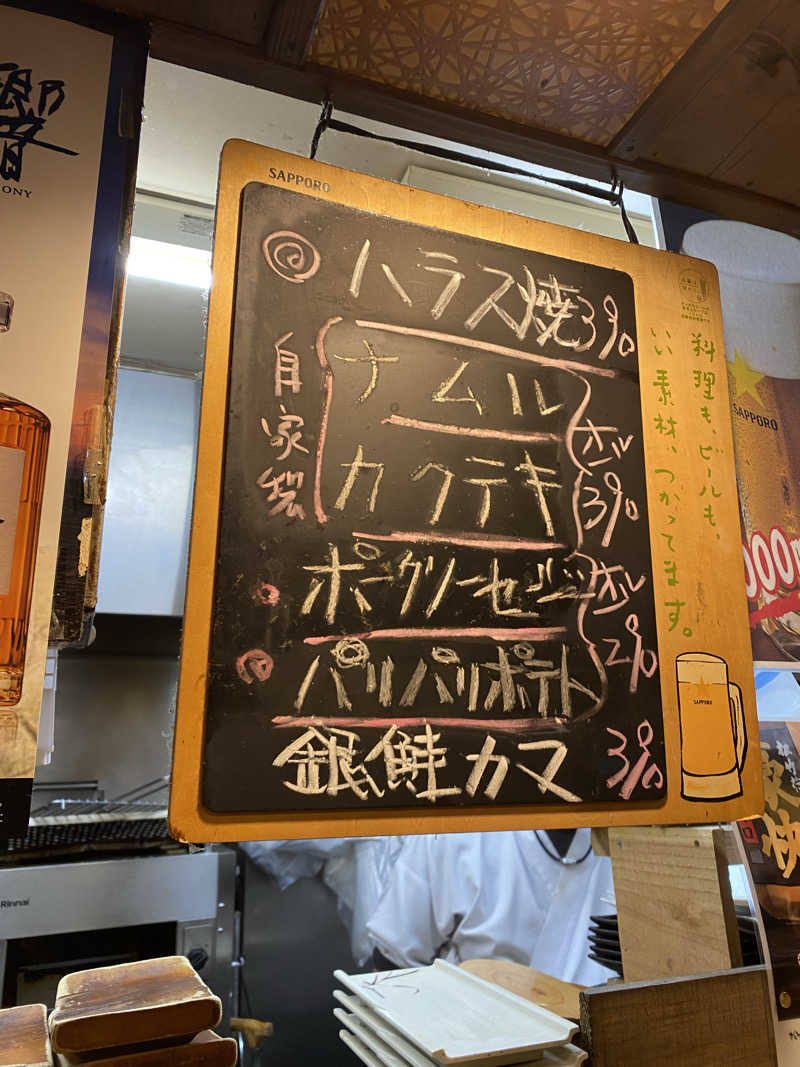 SAPPORO
ハラス焼 390
自家製
ナムル
カクテキ
ホル 390
ポークソーセージ
パリパリポテト
ホル 290
銀鮭カマ 390
料理も、ビールも、
いい素材、つかってます。
SAPPORO
SAPPORO
響
ONY
Rinnai